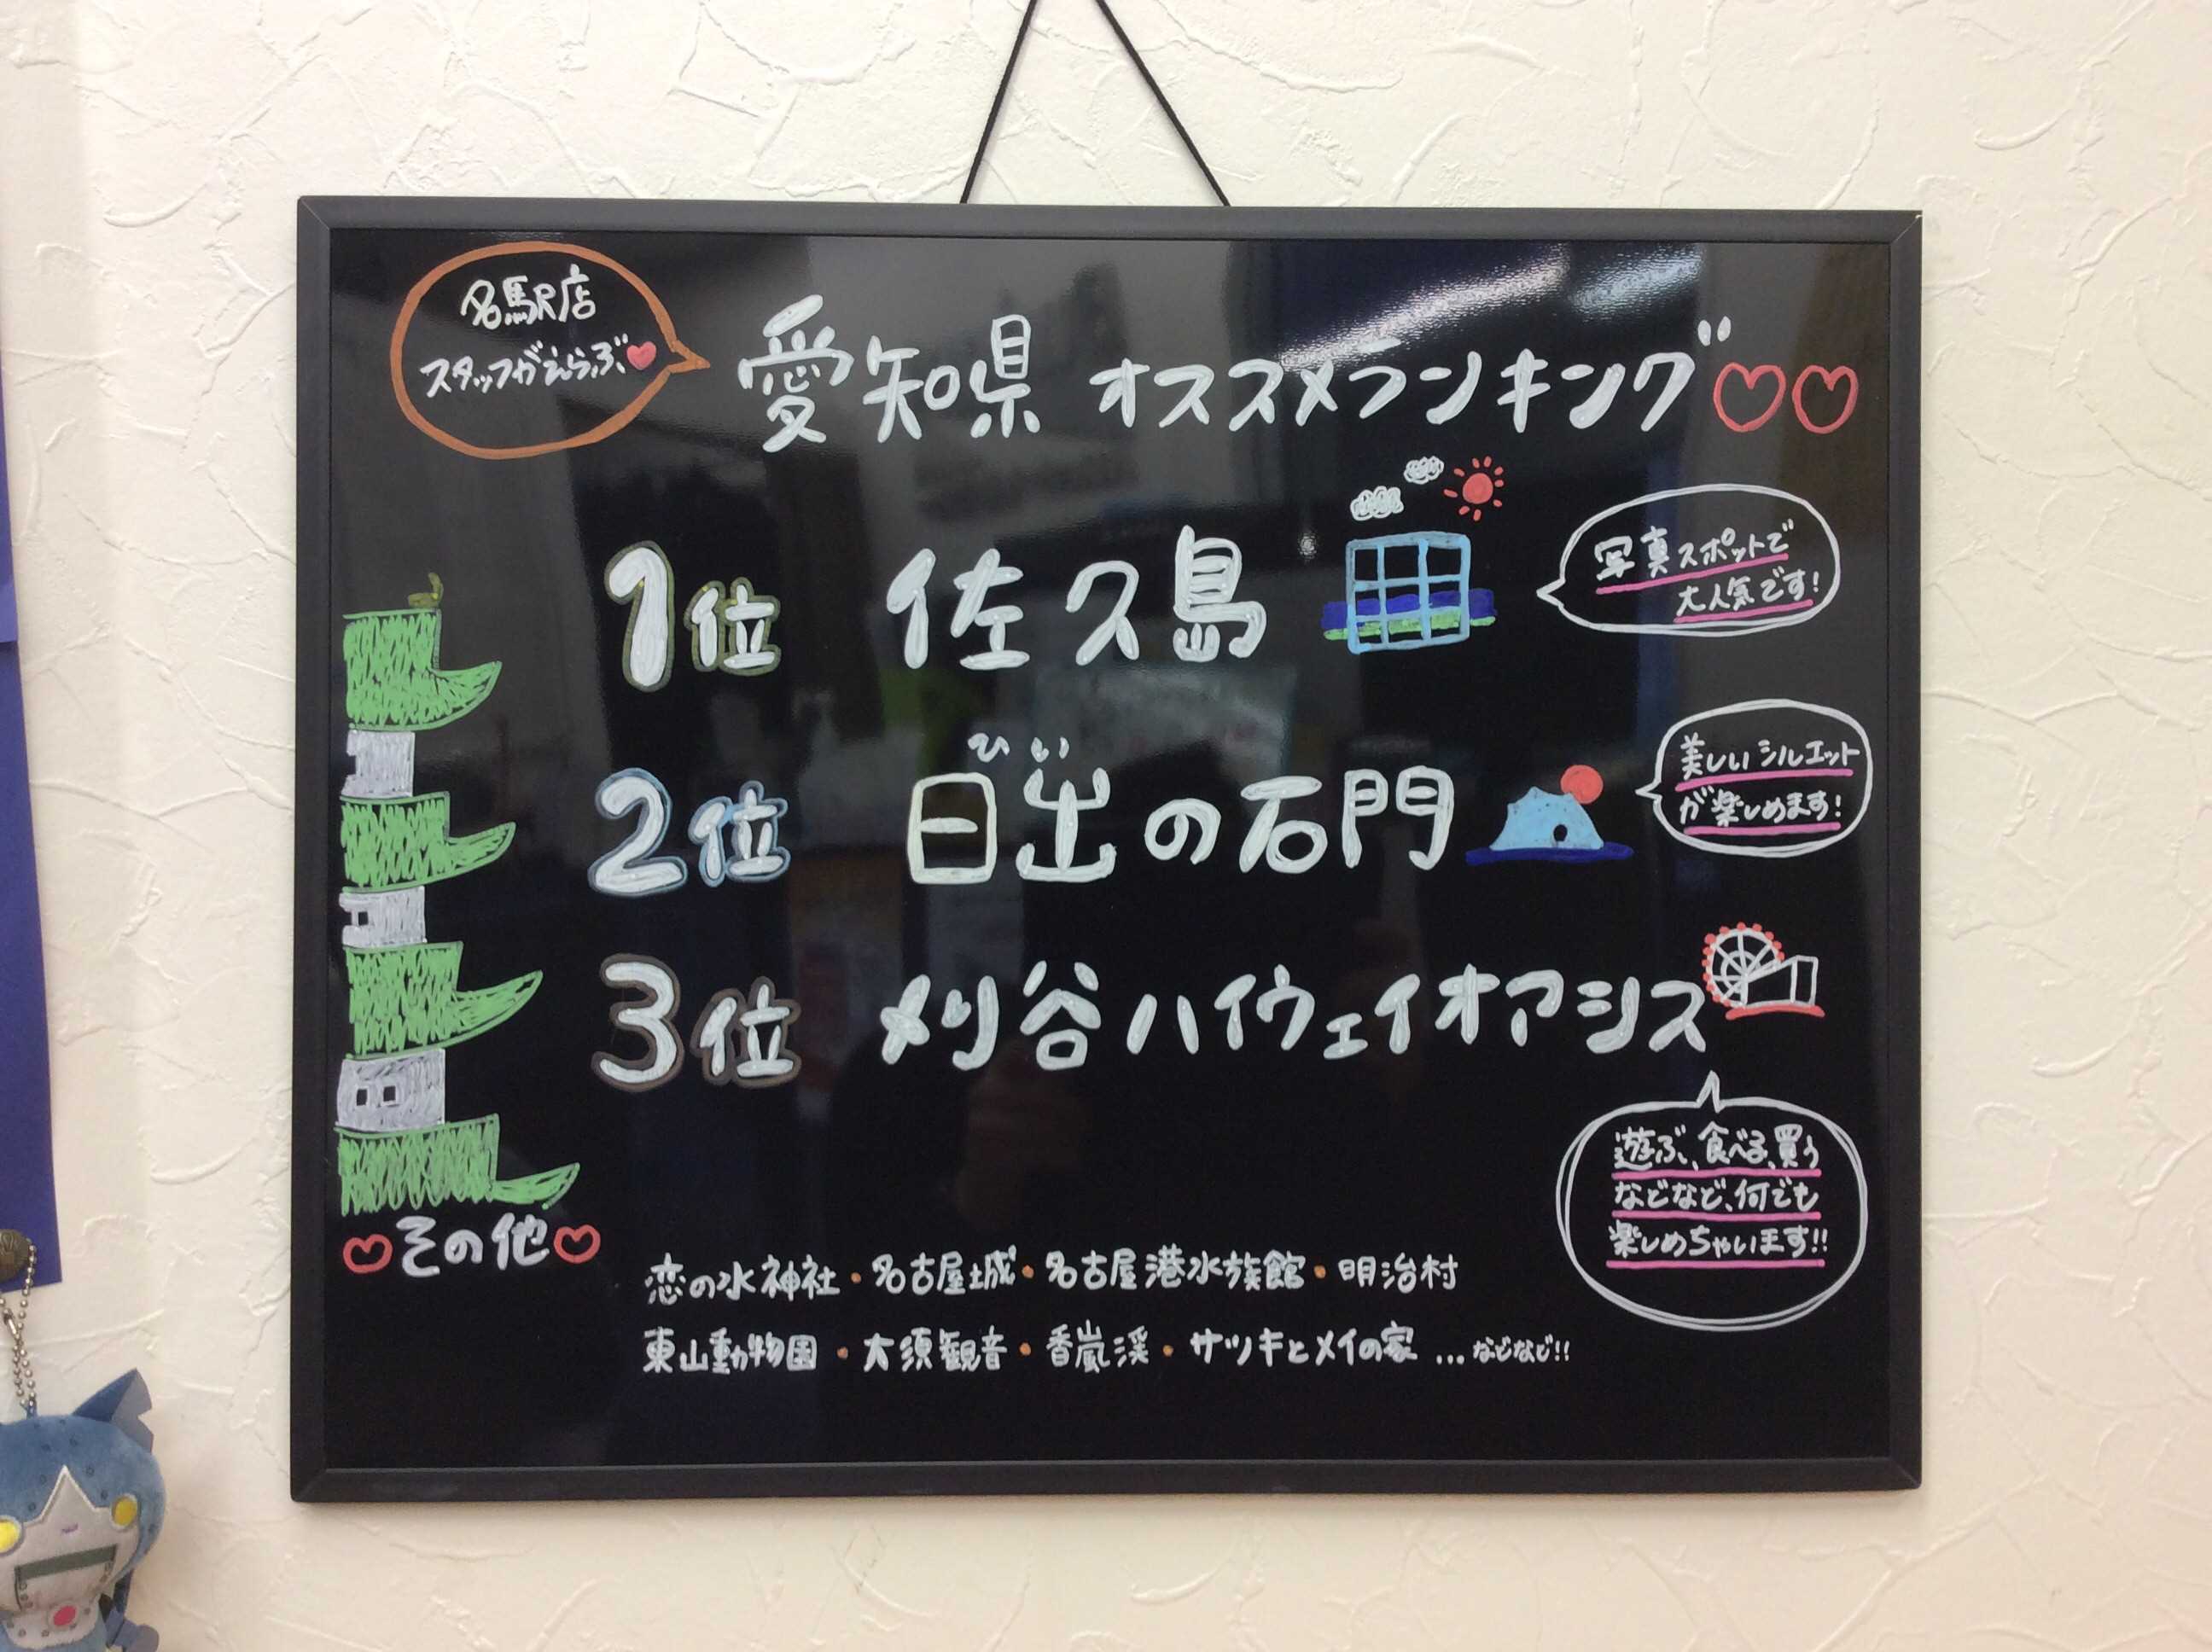 名駅店
スタッフがえらぶ
愛知県 オススメランキング
1位 佐久島
写真スポットで
大人気です!
ひ い
2位 日出の石門
美しいシルエット
が楽しめます!
3位 刈谷ハイウェイオアシス
遊ぶ、食べる、買う
などなど、何でも
楽しめちゃいます!!
その他
恋の水神社・名古屋城・名古屋港水族館・明治村
東山動物園・大須観音・香嵐渓・サツキとメイの家 ...などなど!!